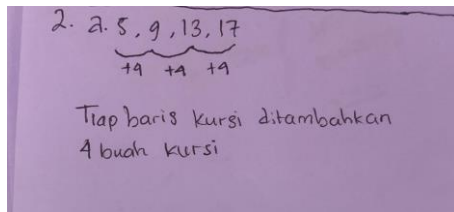 2. a. 5, 9, 13, 17
+4 +4 +4
Tiap baris kursi ditambahkan
4 buah kursi